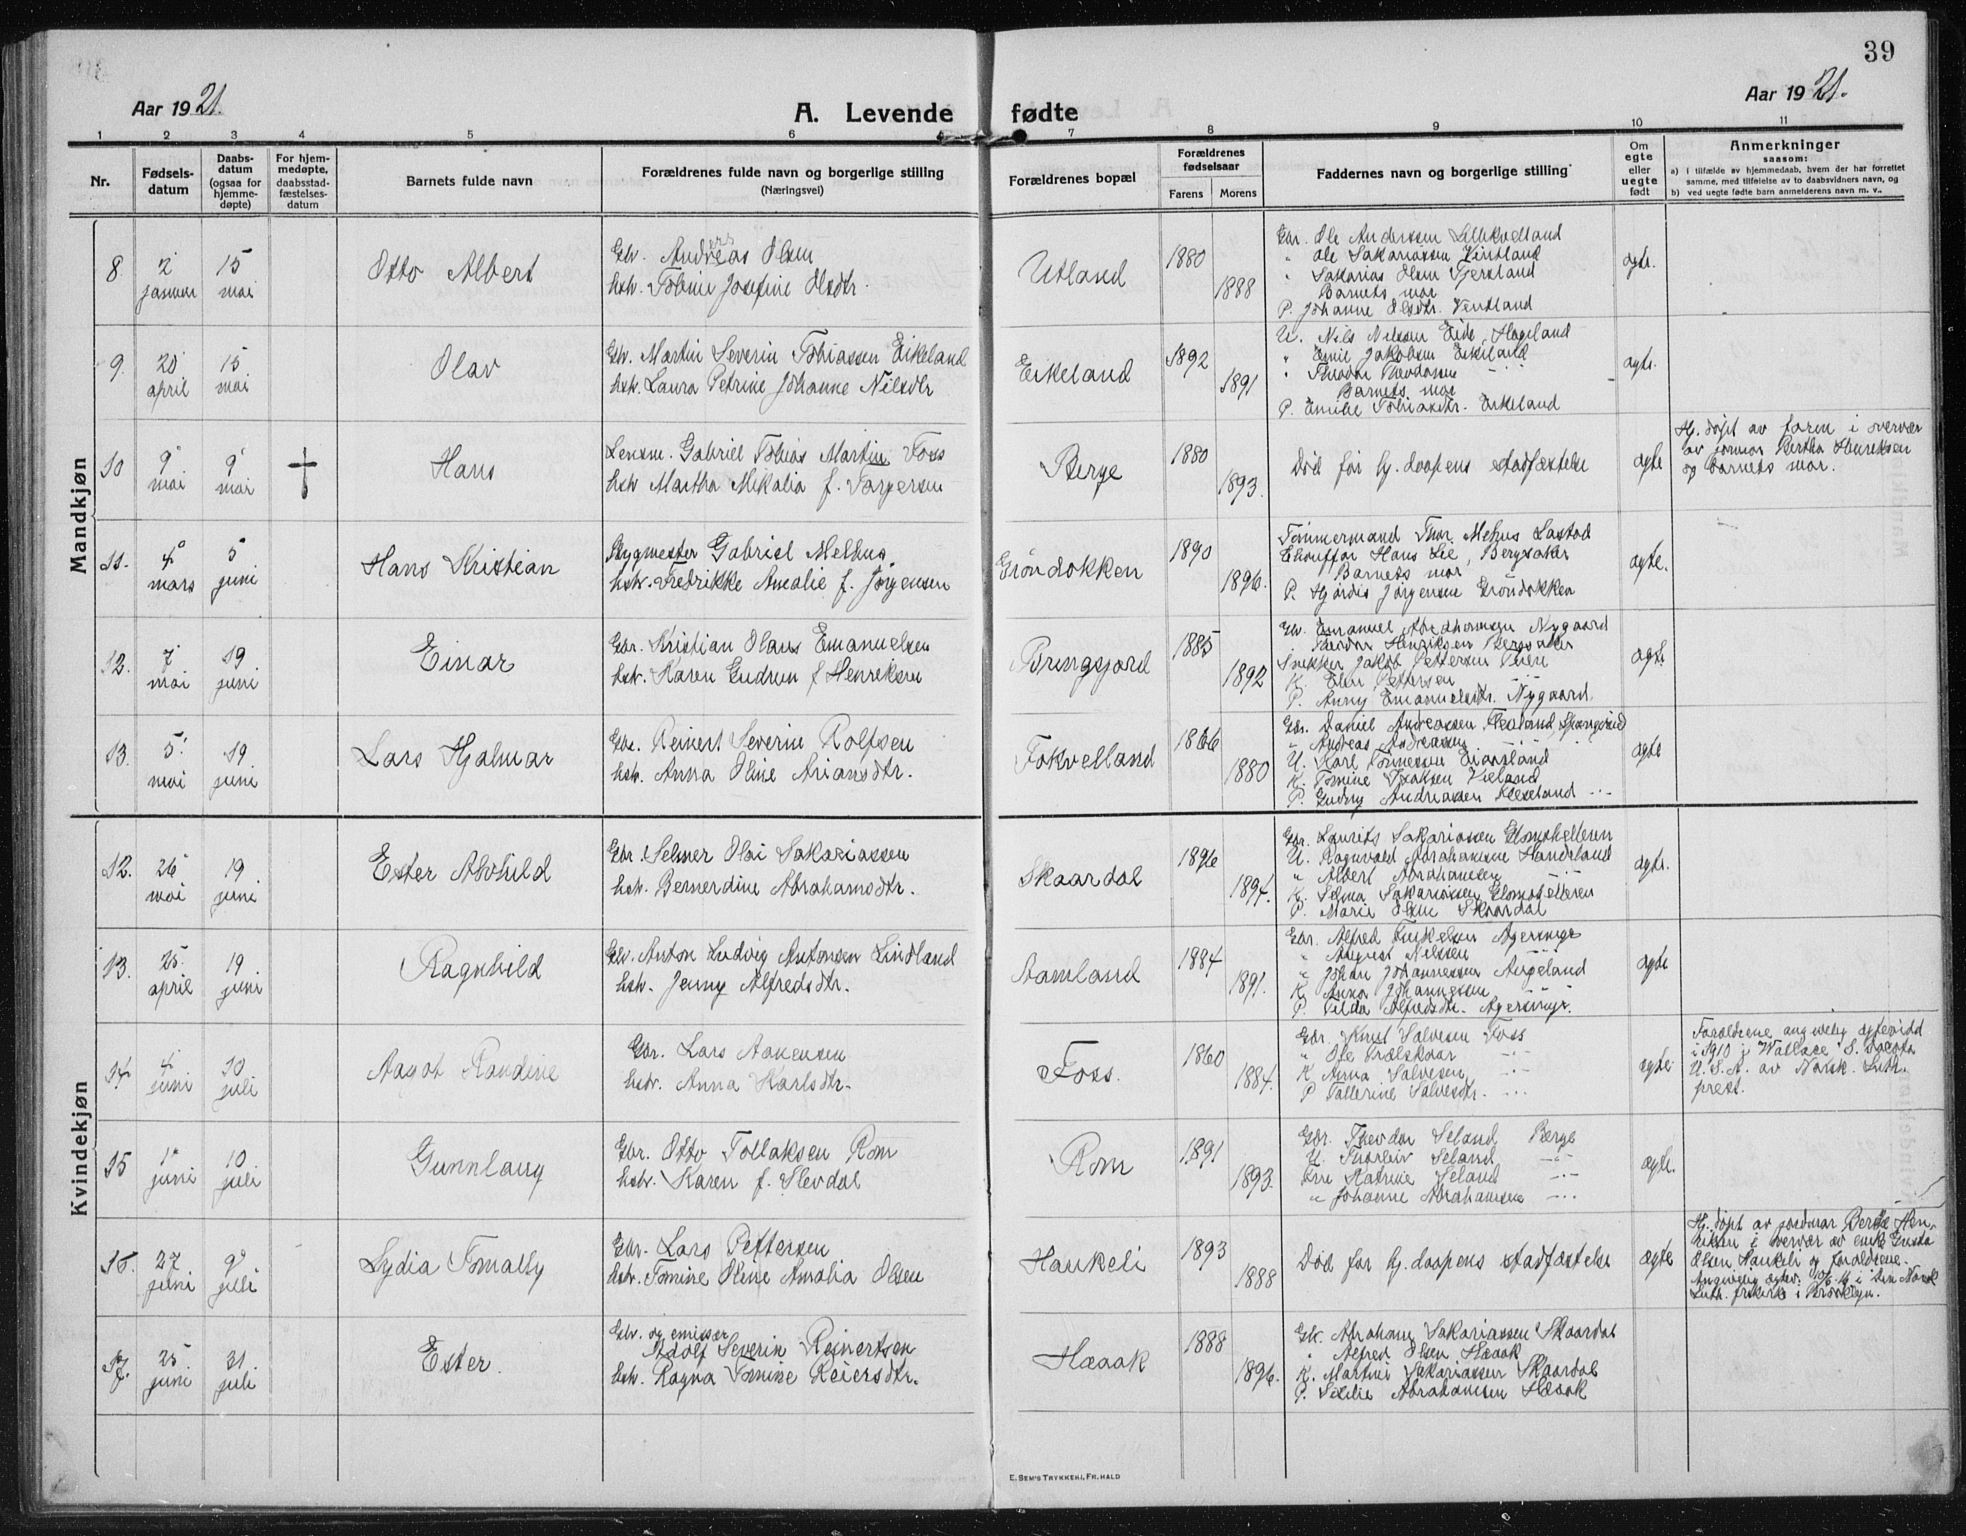 39
Aar 1921.
A. Levende fødte
Aar 1921.
1 2 3 4 5 6 7 8 9 10 11
Nr.
Fødsels-
datum
Daabs-
datum
(ogsaa for
hjemme-
døpte)
For hjem-
medøpte,
daabsstad-
fæstelses-
datum
Barnets fulde navn
Forældrenes fulde navn og borgerlige stilling
(Næringsvei)
Forældrenes bopæl
Forældrenes
fødselsaar
Farens Morens
Faddernes navn og borgerlige stilling
Om
egte
eller
uegte
født
Anmerkninger
saasom:
a) i tilfælde av hjemmedaab, hvem der har forrettet
samme, med tilføielse av to daabsvidners navn, og
b) ved uegte fødte barn anmelderens navn m. v..
Mandkjøn
8
2 januar
15 mai
Otto Albert
Olsen
hstr. Tobine Josefine Olsdtr.
Utland
1880
1888
Gbr. Ole Anderssen Lillekvelland
" Ole Sakariassen Vintland
" Sakarias Olsen Tjersland
Barnets mor
P. Johanne Olsdtr. Vintland
egte.
9.
20 april
15 mai
Olav
Gbr. Martin Severin Tobiassen Eikeland
hstr. Laura Petrine Johanne Nilsdtr
Eikeland
1892
1891
U. Nils Nelssen Eide, Hageland
" Emil Jakobsen Eikeland
" Theodor
Barnets mor
P. Emilie Tobiasdtr. Eikeland
egte.
10
9 mai
9 mai
†
Hans
Lensm. Gabriel Tobias Martin Foss
hstr Martha Mikalia f. Torgersen
Berge
1880
1893.
Død før hj. daapens stadfæstelse
egte
Hj. døpt av faren i overvær
av jormor Bertha Henriksen
og barnets mor.
11.
4 mars
5 juni
Hans Kristian
Bygmester Gabriel Melhus
hstr. Fredrikke Amalie f. Jørgensen
Gröndokken
1890
1896.
Tømmermand Thor Mehus Lastad
Chauffør Hans Lie, Bergsaker
Barnets mor
P. Hjördis Jørgensen Gröndokken
egte.
12.
7 mai
19 juni
Einar
Gbr. Kristian Olaus Emanuelsen
hstr. Karen Gudrun f Henriksen
Bringsjord
1885
1892
Gbr. Emanuel Nygaard
Henriksen Bergsaker
Snekker Jakob Pettersen
K. Elen Pettersen
P. Anny Emanuelsdtr. Nygaard.
egte
13.
5 mai
19 juni
Lars Hjalmar
Gbr. Reinert Severin Rolfsen
hstr. Anna Oline Ariansdtr.
Fokvelland
1866
1880
Gbr. Daniel Andreassen
" Andreas Andreassen
U. Karl Tønnessen
K. Tomine Isaksen
P. Gudny Andreassen
egte
Kvindekjøn
12.
26 mai
19 juni
Ester Alvhild
Gbr. Selmer Olai Sakariassen
hstr. Bernerdine Abrahamsdtr.
Skaardal
1896
1894.
Gbr. Laurits Sakariassen Glomshelleren
U. Ragnvald Abrahamsen Handeland
" Albert Abrahamsen
K. Selma Sakariassen Glomshelleren
P. Marie Olsen Skaardal
egte.
13.
25 april
19 juni
Ragnhild
Gbr. Anton Ludvig Antonsen Lindland
hstr. Jenny Alfredsdtr.
Aamland
1884
1891.
Gbr. Alfred
" August Nilssen
" Johan Johannessen Augeland
K. Anna Johannessen
P. Vilda Alfredsdtr.
egte
14
4 juni
10 juli
Aagot Randine
Gbr. Lars Aanensen
hstr. Anna Karlsdtr.
Foss.
1860
1884.
Gbr. Knut Salvesen Foss
" Ole Trælskaar
K. Anna Salvesen
P Tallerine Salvesdtr.
egte
Forældrene angivelig egteviet
i 1910 i Wallace S. Dacota
U. S. A. av Norsk. Luth.
prest.
15
1 juni
10 juli
Gunnlaug
Gbr. Otto Tollaksen Rom
hstr. Karen f. Slevdal
Rom
1891
1893.
Gbr. Theodor Seland Berge
U. Thorleiv Seland
Kone Katrine Seland
" Johanne Abrahamsen
egte.
16.
27 juni
9 juli
Lydia Tomally
Gbr. Lars Pettersen
hstr. Tomine Oline Amalia Olsen
Haukeli
1893
1888
Død før hj. daapens stadfæstelse
egte
Hj. døpt av jordmor Berthe Hen-
riksen i overvær av enke Gusta
Olsen, Haukeli og forældrene.
i den Norsk
Luth. frikirke i Brooklyn.
17.
25 juni
31. juli
Ester.
Gbr. og emissær
Adolf Severin Reinertsen
hstr. Ragna Tomine Reiersdtr.
Hæaak
1888
1896.
Gbr. Abraham Sakariassen Skaardal
" Alfred Olsen Hæaak
K. Martine Sakariassen Skaardal
P. Sesilie Abrahamsen Hæaak
E. SEM'S TRYKKERI, FR.HALD